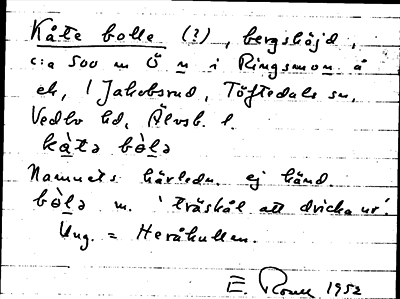 Kåte bolle (?), bergshöjd,
c:a 500 m Ö n i Ringsmon å
ek, 1 Jakobsrud, Töftedals sn,
Vedbo hd, Älvsb. l.
kàtə bòlə
Namnets härledn. ej känd.
bòlə m. 'träskål att dricka ur'.
Ung. = Heråkullen.
E. 1952